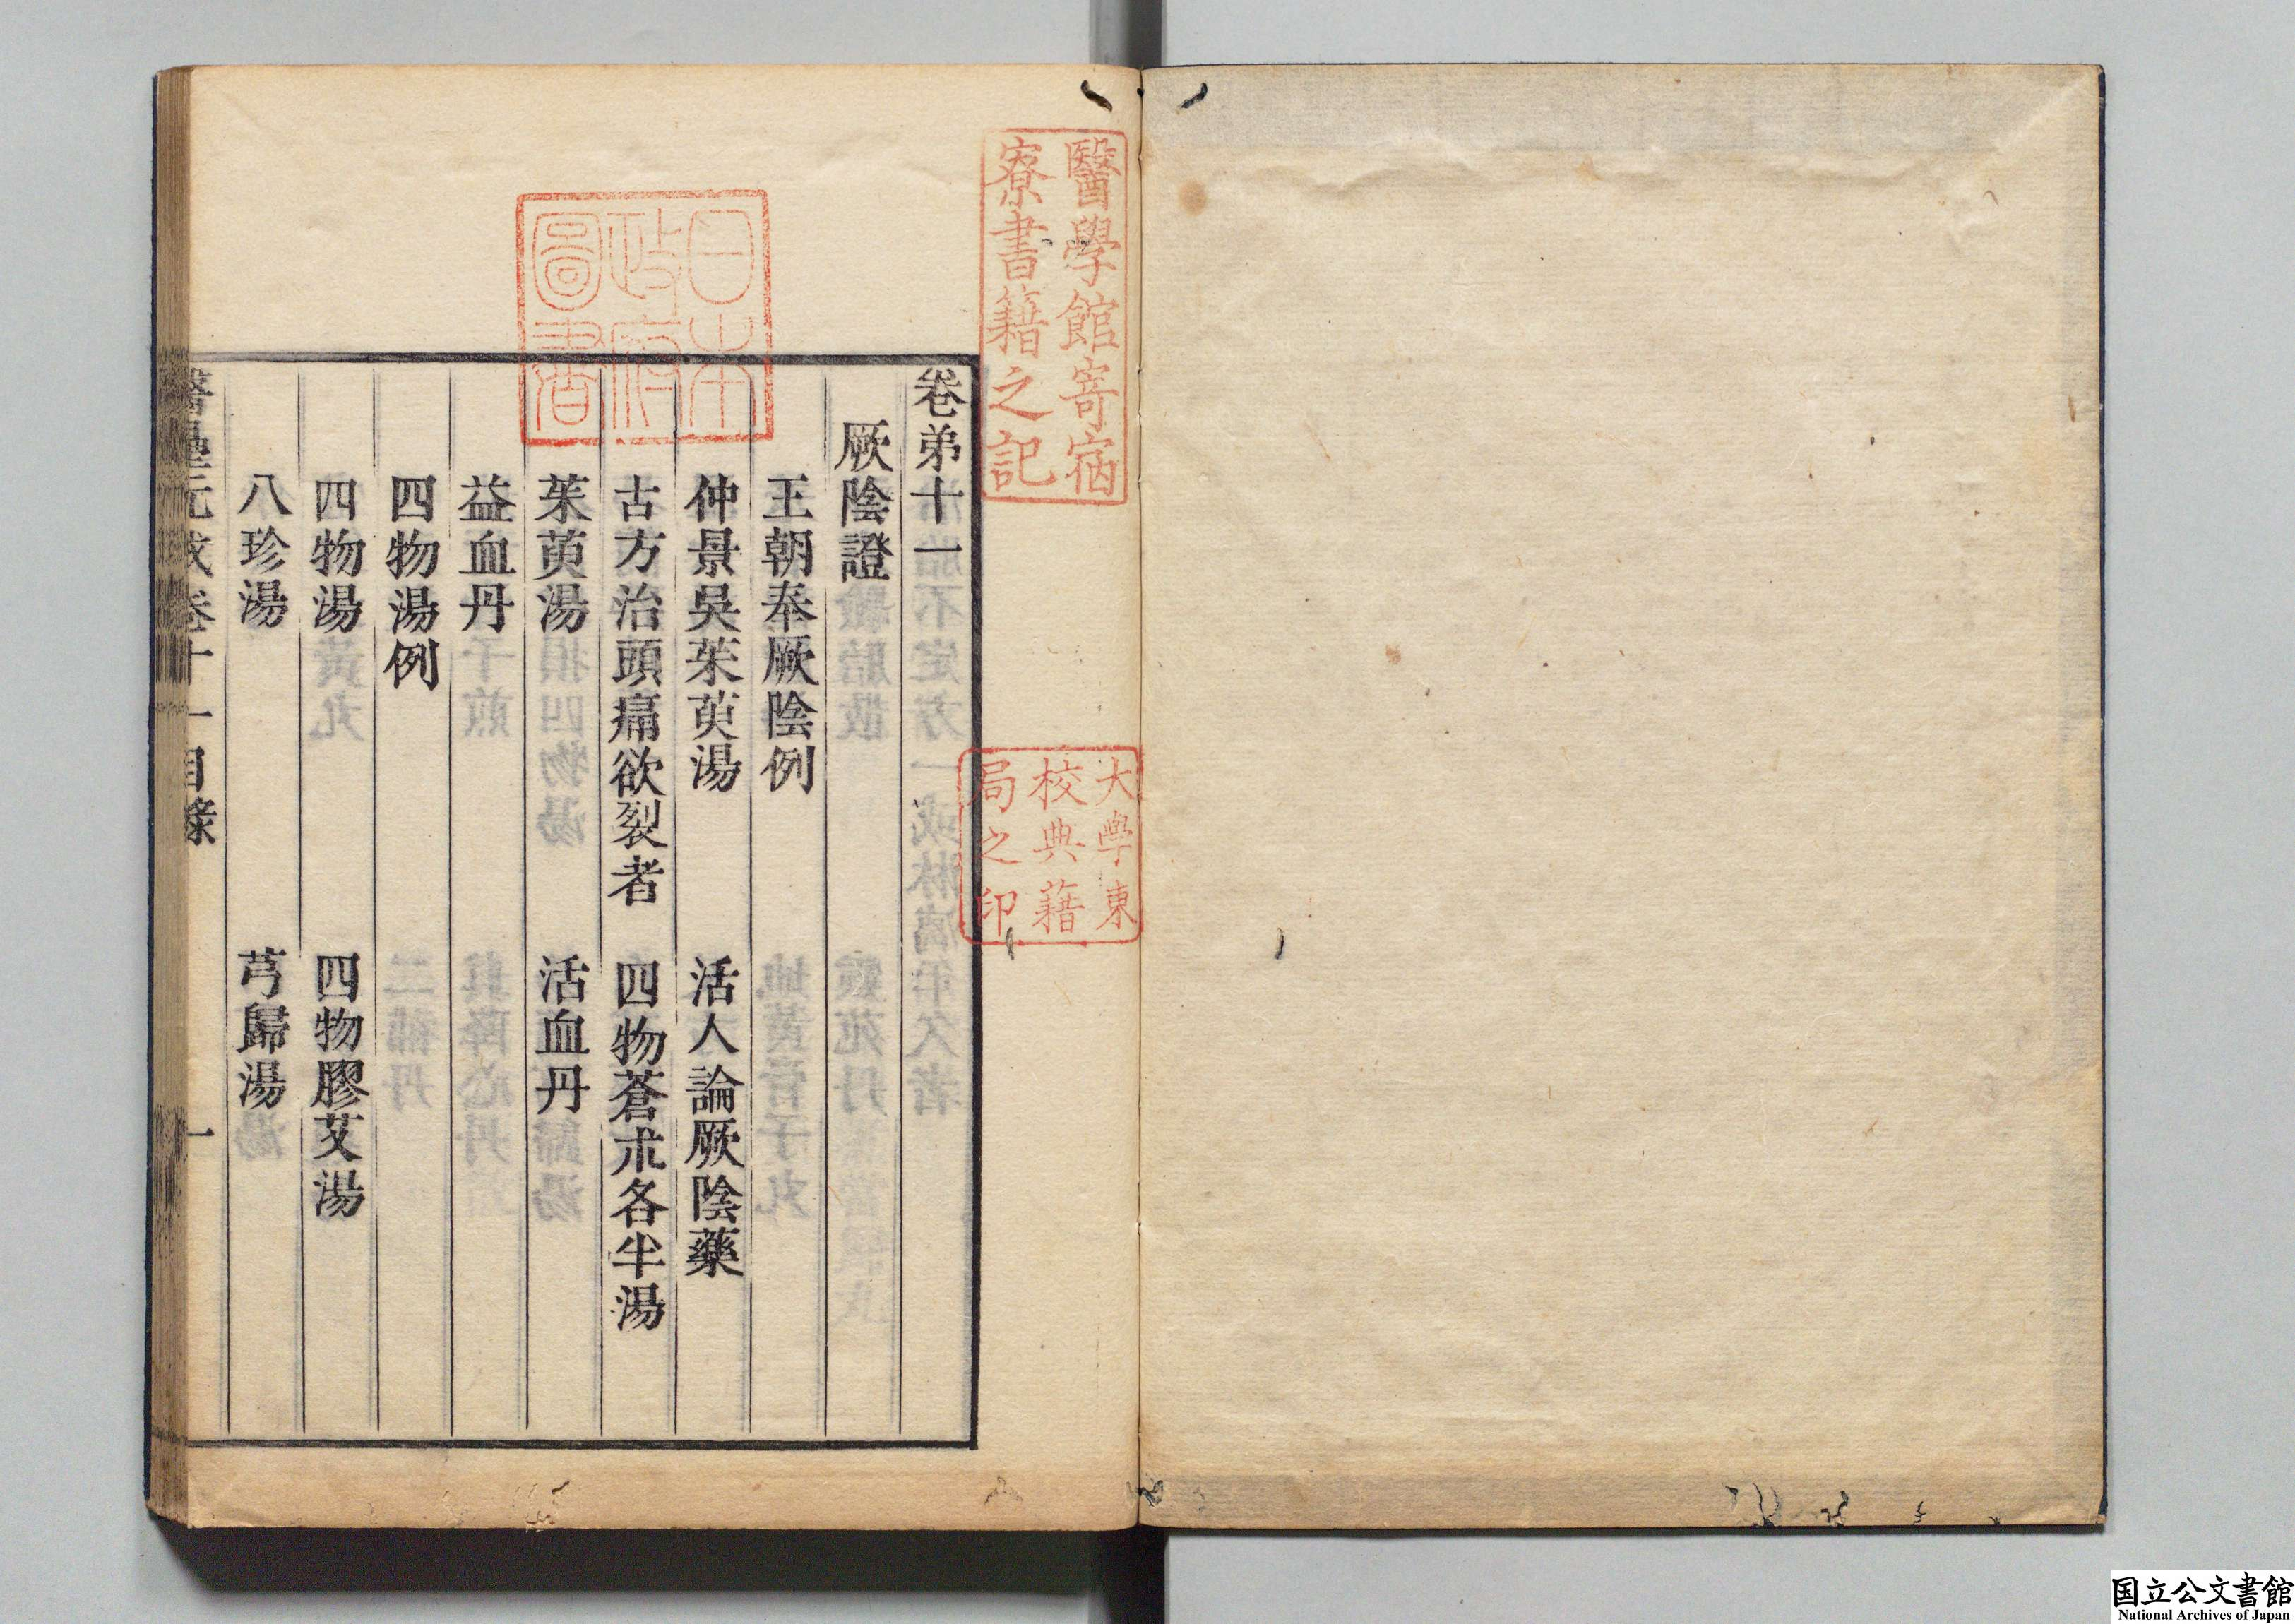 醫學館寄宿
寮書籍之記
大學東
校典籍
局之印
日本
政府
圖書
卷弟十一
厥陰證
王朝奉厥陰例
仲景吳茱萸湯 活人論厥陰藥
古方治頭痛欲裂者 四物蒼朮各半湯
茱萸湯 活血丹
益血丹
四物湯例
四物湯 四物膠艾湯
八珍湯 芎歸湯
醫壘元戎卷十一目錄 一
国立公文書館
National Archives of Japan